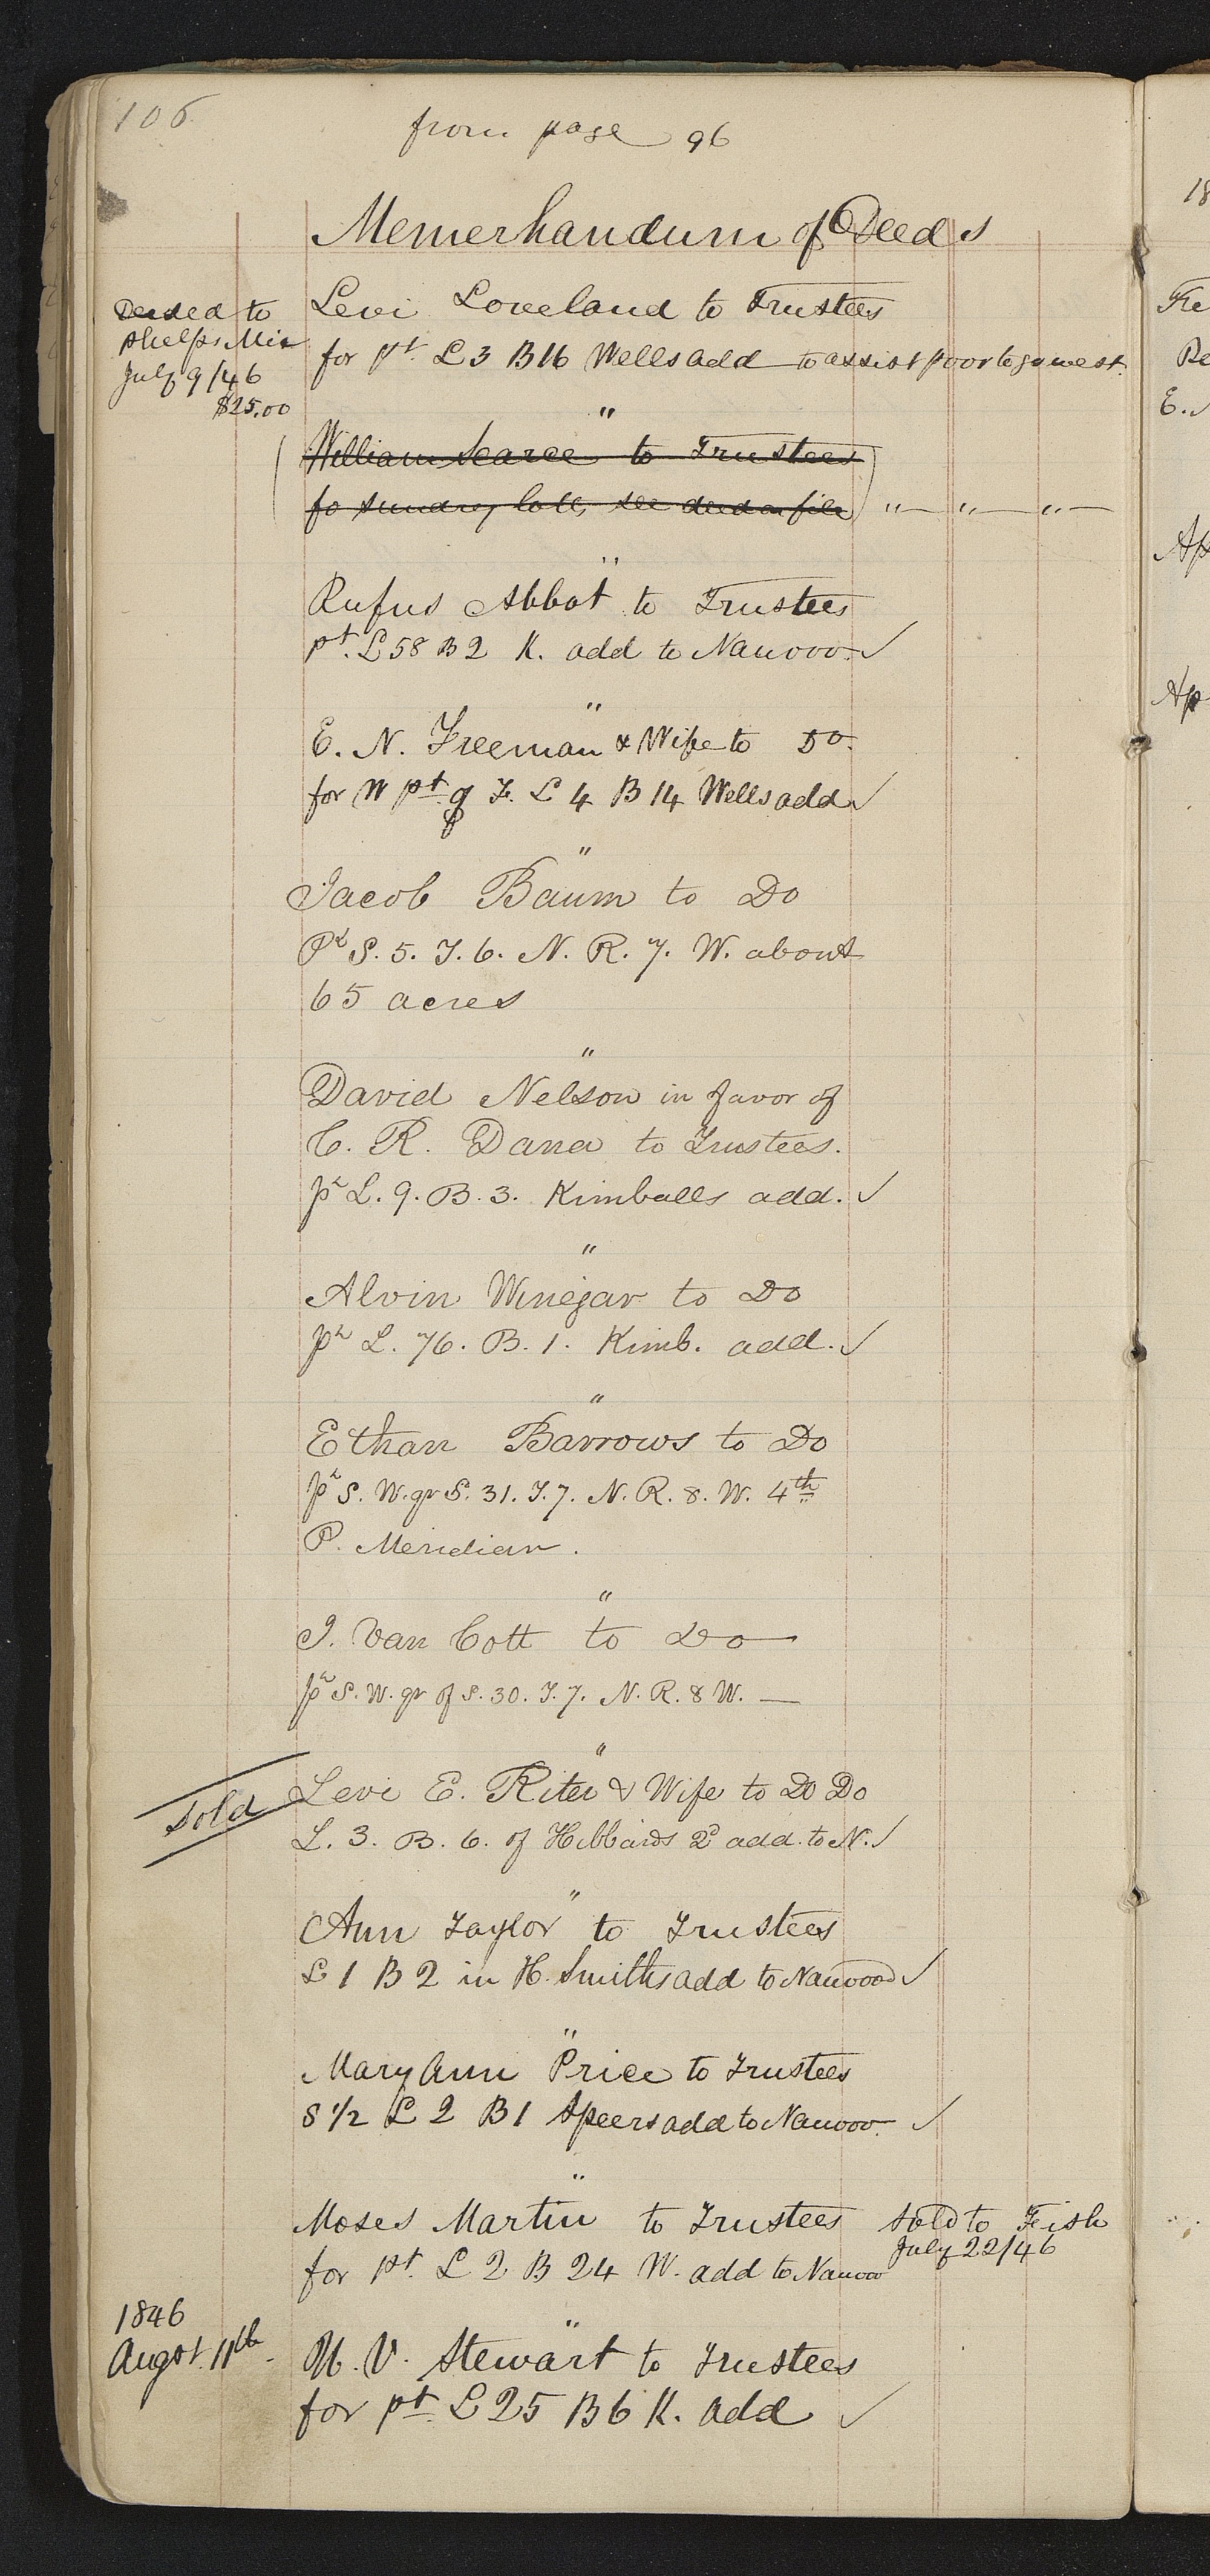 106
from page 96
Memerhandum of Deeds
Deeded to
Phelps Mix
July 9/46
$25.00
Levi Loveland to Trustees
for pt. L 3 B 16 Wells add to assist poor to go west.
"
William Searce to Trustees
fo sundry lots, see deed on file " — " — " —
"
Rufus Abbot to Trustees
pt. L 58 B 2 K. add to Nauvoo. ✓
"
E. N. Freeman & Wife to Do.
for W pt. of F. L 4 B 14 Wells add ✓
"
Jacob Baum to Do
Pt S. 5. T. 6. N. R. 7. W. about
65 acres
"
David Nelson in favor of
C. R. Dana to Trustees.
pt L. 9. B. 3. Kimballs add. ✓
"
Alvin Winegar to Do
pt L. 76. B. 1. Kimb. add. ✓
"
Ethan Barrows to Do
pt S. W. qr S. 31. T. 7. N. R. 8. W. 4th
P. Meridian.
"
J. Van Cott to Do —
pt S. W. qr of S. 30. T. 7. N. R. 8 W. —
"
Sold
Levi E. Riter & Wife to Do Do
L. 3. B. 6. of Hibbards 2d add. to N. ✓
"
Ann Taylor to Trustees
L 1 B 2 in H. Smiths add to Nauvoo ✓
"
Mary Ann Price to Trustees
S 1/2 L 2 B 1 Speers add to Nauvoo. ✓
"
Moses Martin to Trustees Sold to Fish
July 22/46
for pt. L 2 B 24 W. add to Nauvoo
1846
Augst. 11th.
"
U. V. Stewart to Trustees
for pt. L 25 B 6 K. add ✓
18
Re
E.
Ap
Ap